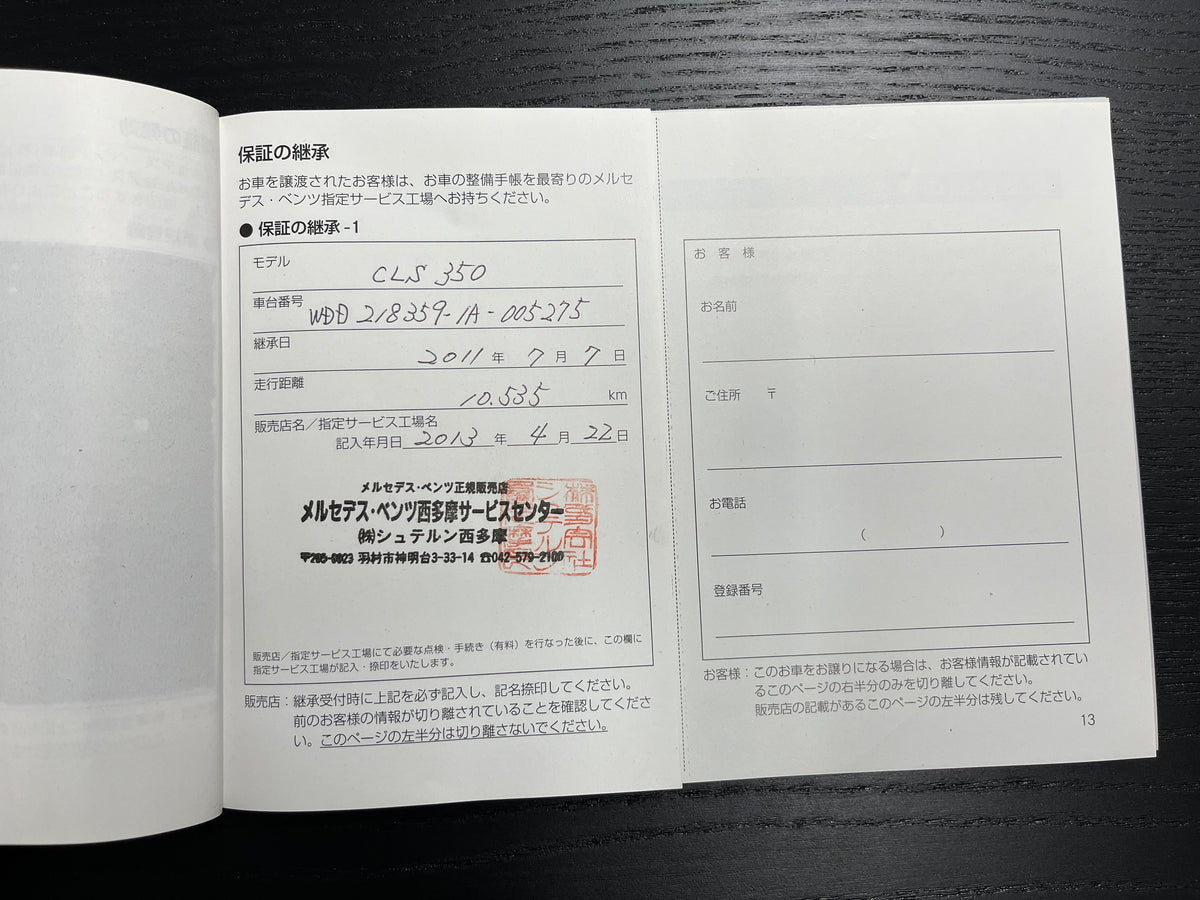 保証の継承
お車を譲渡されたお客様は、お車の整備手帳を最寄りのメルセ
デス・ベンツ指定サービス工場へお持ちください。
● 保証の継承-1
モデル CLS 350
車台番号 WDD 218359-1A-005275
継承日 2011 年 7 月 7 日
走行距離 10.535 km
販売店名／指定サービス工場名
記入年月日 2013 年 4 月 22 日
メルセデス・ベンツ正規販売店
メルセデス・ベンツ西多摩サービスセンター
㈱シュテルン西多摩
〒205-0023 羽村市神明台3-33-14 ☎042-579-2100
販売店／指定サービス工場にて必要な点検・手続き（有料）を行なった後に、この欄に
指定サービス工場が記入・捺印をいたします。
販売店：継承受付時に上記を必ず記入し、記名捺印してください。
前のお客様の情報が切り離されていることを確認してくださ
い。このページの左半分は切り離さないでください。
お客様
お名前
ご住所 〒
お電話
（ ）
登録番号
お客様：このお車をお譲りになる場合は、お客様情報が記載されてい
るこのページの右半分のみを切り離してください。
販売店の記載があるこのページの左半分は残してください。
13